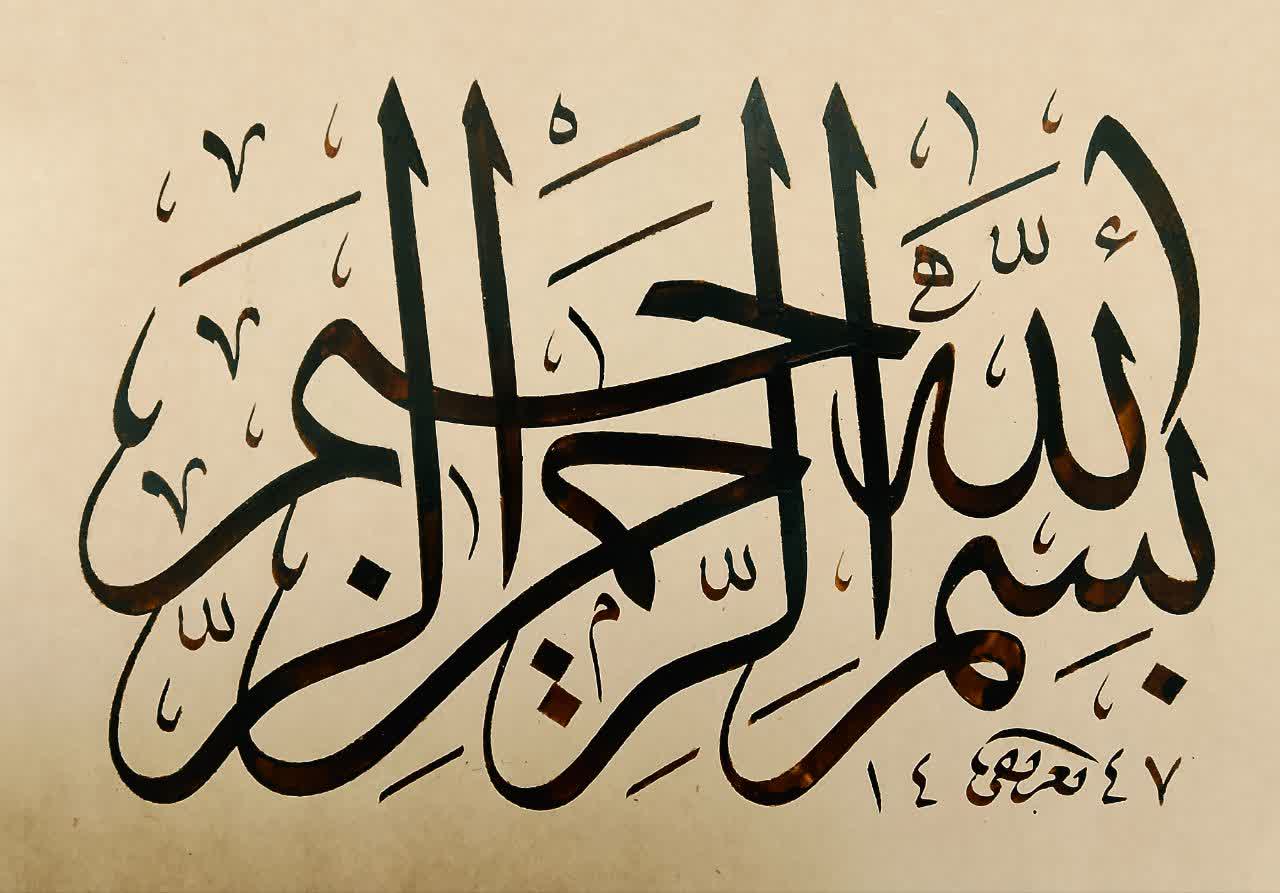 بِسْمِ اللّٰهِ الرَّحْمٰنِ الرَّحِيمِ
١٤ ٤٧